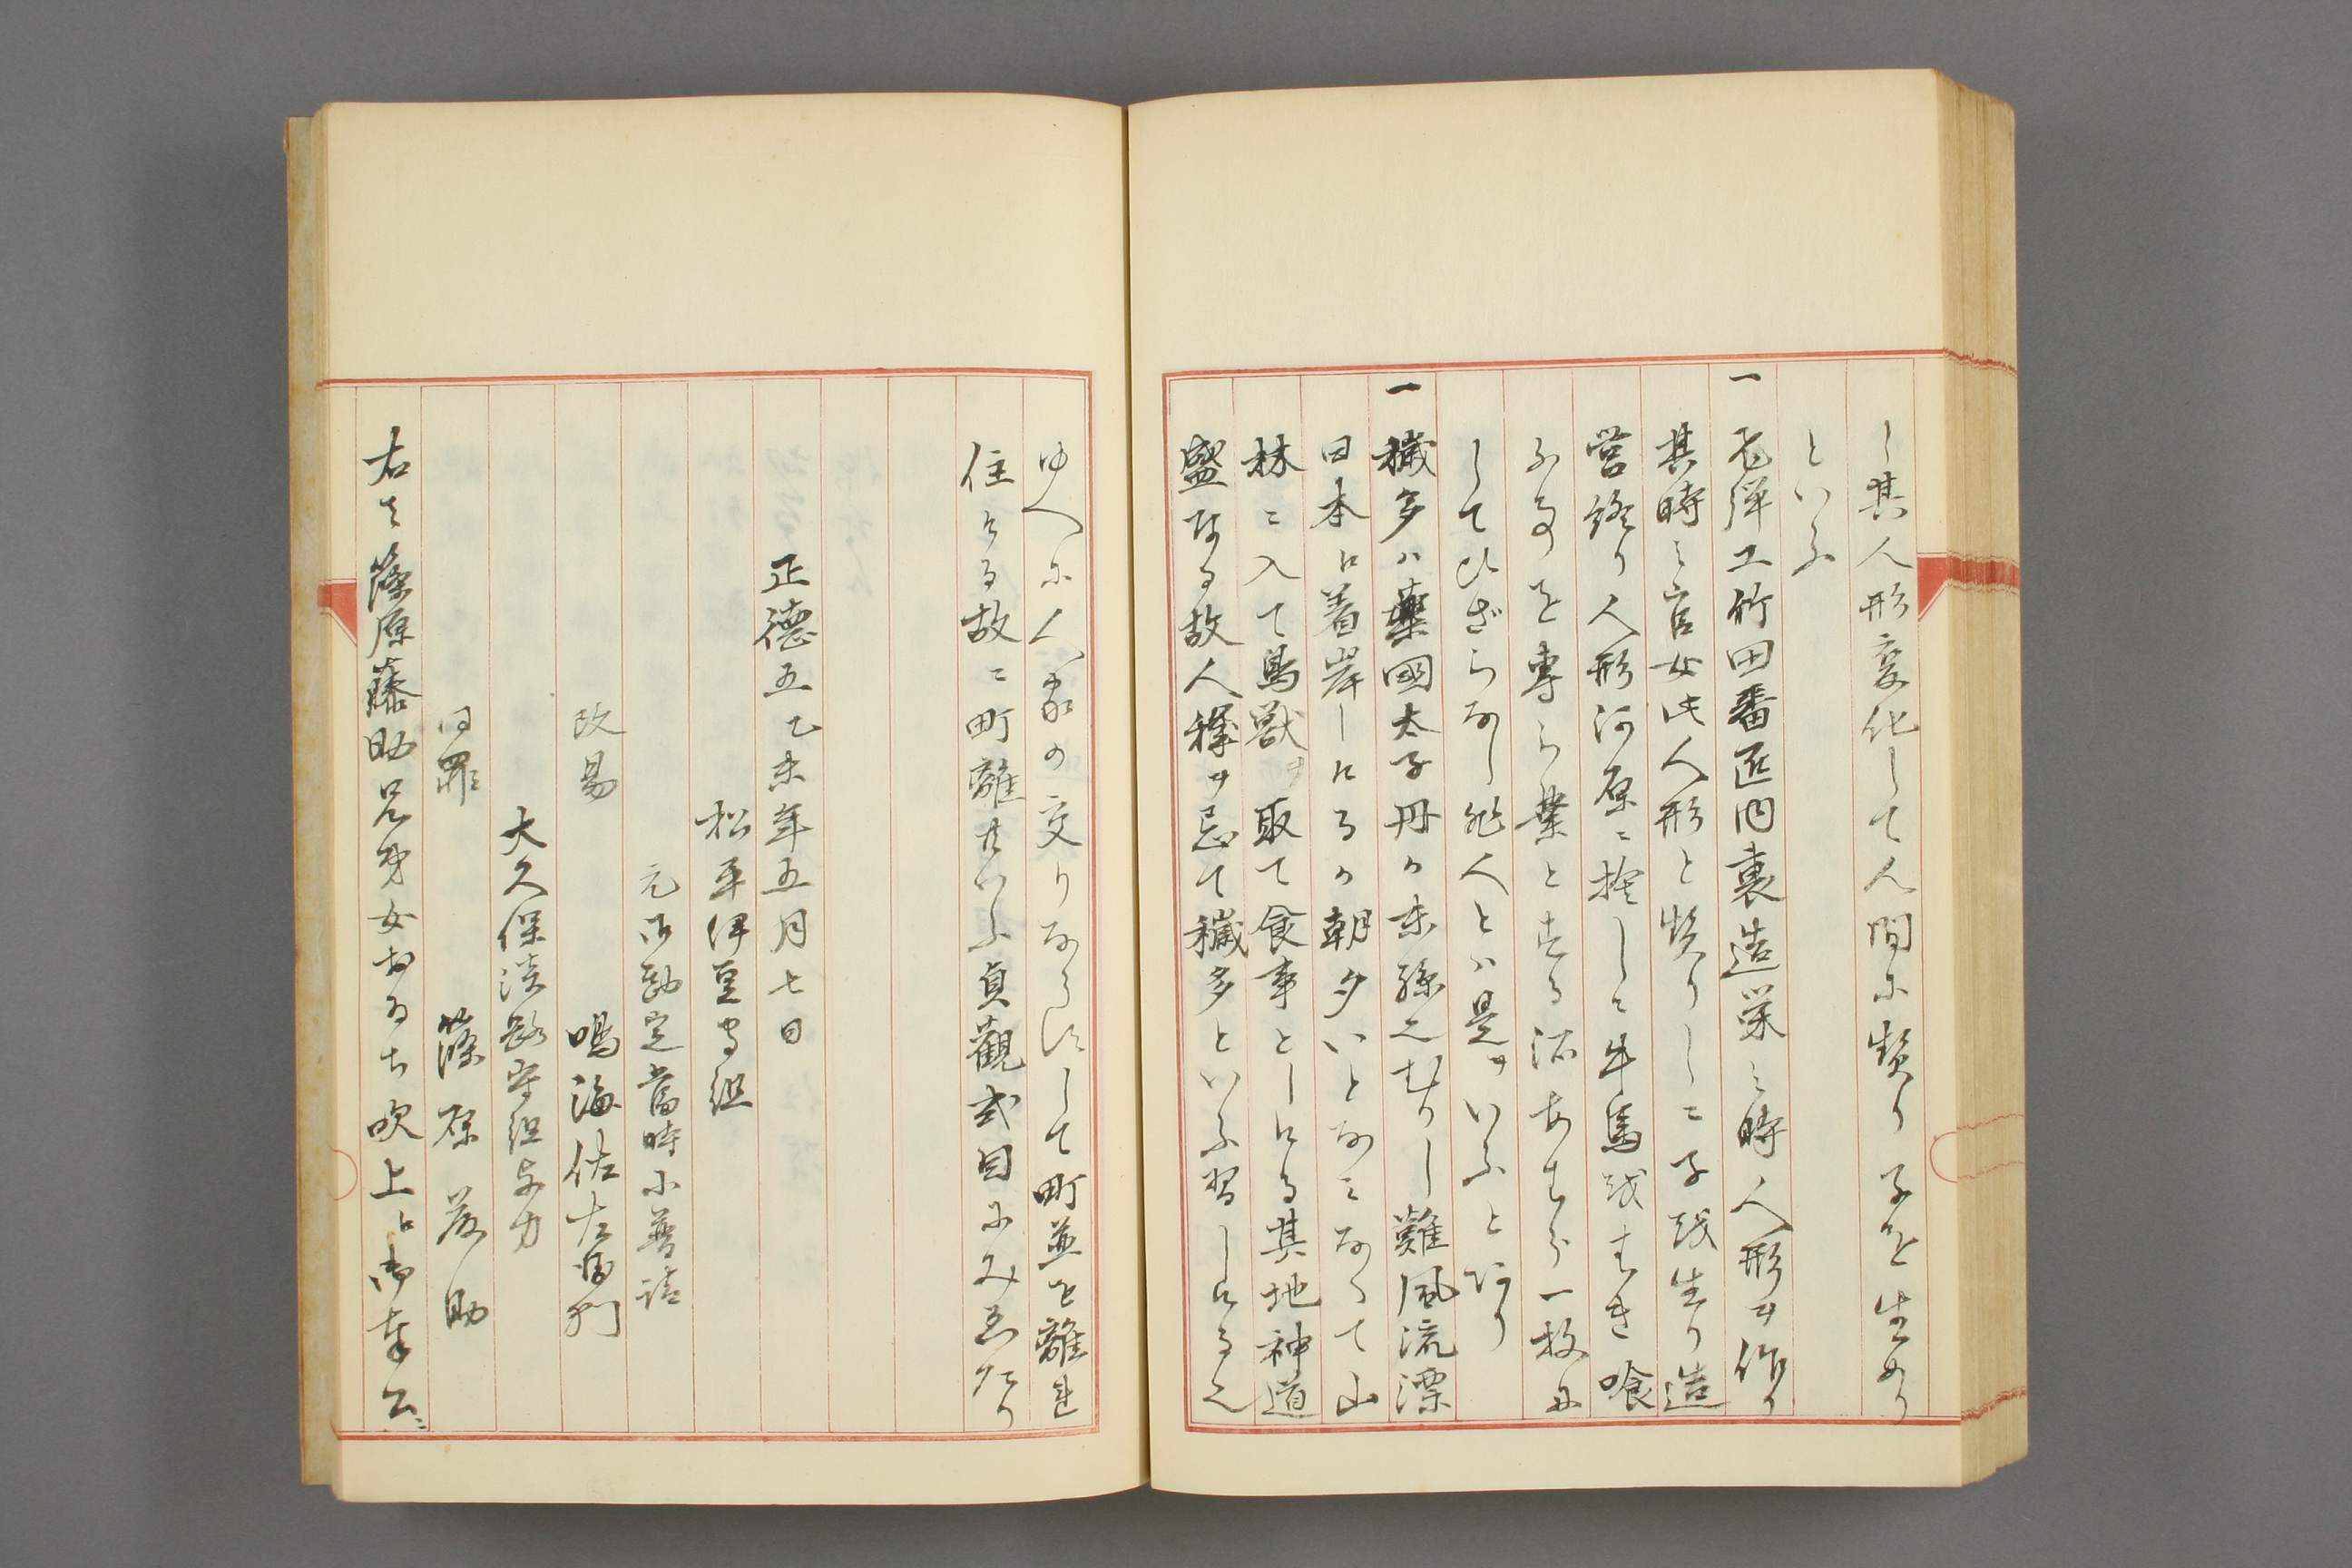 し其人形変化して人間に契り子を生めり
といふ
一 飛弾工竹田番匠内裏造栄之時人形ヲ作り
其時之官女此人形と契りしニ子を生り造
営終り人形河原ニ捨しニ牛馬をはき喰
ふ事を専ら業とする
してひざらなし非人とハ是ヲいふとなり
一 穢多ハ燕國太子丹の末孫也むかし難風流漂
日本に着岸しけるか朝夕いとなミなくて山
林ニ入て鳥獣ヲ取て食事としける其地神道
盛なる故人穢ヲ忌て穢多といふ習しける也
ゆへに人家の交りならすして町並を離れ
住ける故ニ町離れといふ貞観式目にみえたり
正徳五乙未年五月七日
松平伊豆守組
元御勘定當時小普請
改易 鳴海佐左衛門
大久保淡路守組与力
同罪 篠原藤助
右は篠原藤助兄弟女
吹上に